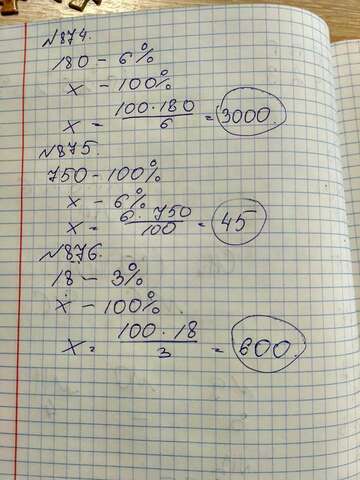 №874.
180 - 6%
x - 100%
x = 100·180/6 = 3000.
№875.
750 - 100%
x - 6%
x = 6·750/100 = 45
№876.
18 - 3%
x - 100%
x = 100·18/3 = 600.